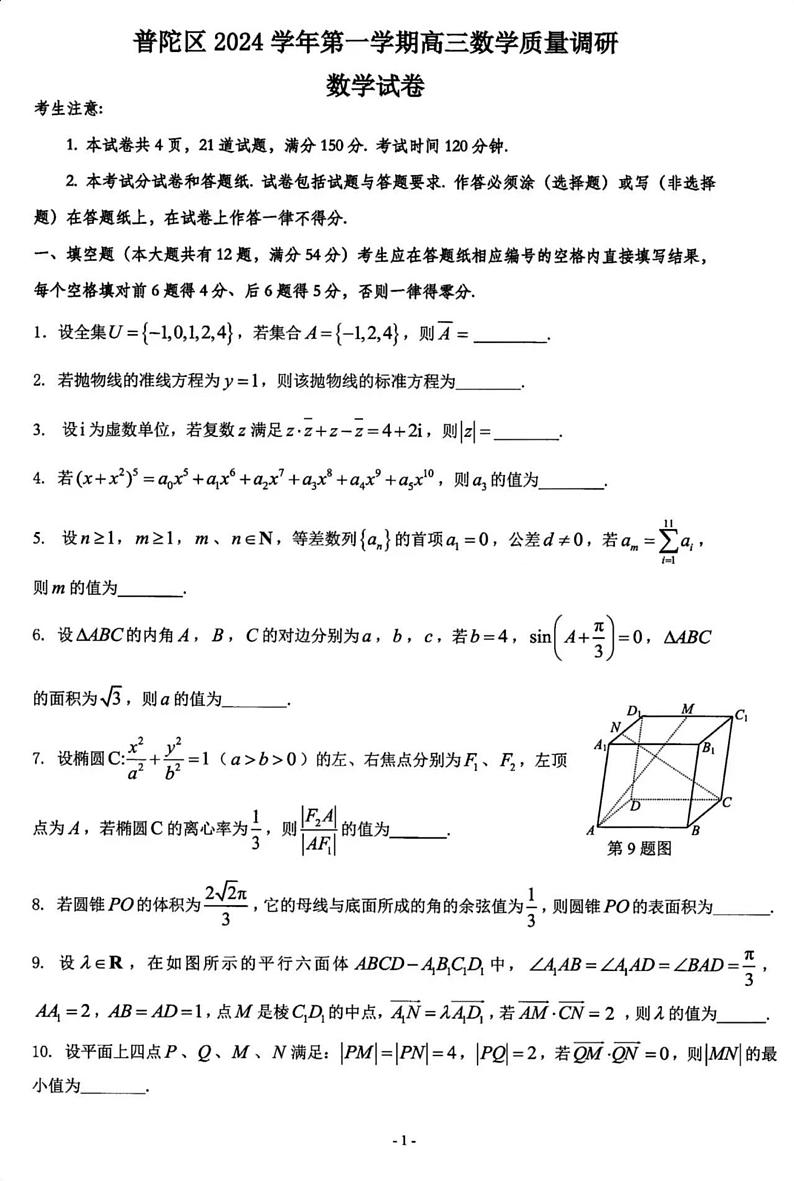 普陀区 2024 学年第一学期高三数学质量调研
数学试卷
考生注意:
1. 本试卷共 4 页，21 道试题，满分 150 分. 考试时间 120 分钟.
2. 本考试分试卷和答题纸. 试卷包括试题与答题要求. 作答必须涂（选择题）或写（非选择
题）在答题纸上，在试卷上作答一律不得分.
一、填空题（本大题共有 12 题，满分 54 分）考生应在答题纸相应编号的空格内直接填写结果，
每个空格填对前 6 题得 4 分、后 6 题得 5 分，否则一律得零分.
1. 设全集 $U=\{-1,0,1,2,4\}$，若集合 $A=\{-1,2,4\}$，则 $\overline{A}=$ ________.
2. 若抛物线的准线方程为 $y=1$，则该抛物线的标准方程为________.
3. 设 i 为虚数单位，若复数 $z$ 满足 $z\cdot\overline{z}+z-\overline{z}=4+2\mathrm{i}$，则 $|z|=$ ________.
4. 若 $(x+x^2)^5=a_0x^5+a_1x^6+a_2x^7+a_3x^8+a_4x^9+a_5x^{10}$，则 $a_3$ 的值为________.
5. 设 $n\geq1$，$m\geq1$，$m$、$n\in\mathbf{N}$，等差数列 $\{a_n\}$ 的首项 $a_1=0$，公差 $d\neq0$，若 $a_m=\sum_{i=1}^{11}a_i$，
则 $m$ 的值为________.
6. 设 $\Delta ABC$ 的内角 $A$，$B$，$C$ 的对边分别为 $a$，$b$，$c$，若 $b=4$，$\sin\left(A+\frac{\pi}{3}\right)=0$，$\Delta ABC$
的面积为 $\sqrt{3}$，则 $a$ 的值为________.
7. 设椭圆 $\mathrm{C}:\frac{x^2}{a^2}+\frac{y^2}{b^2}=1$（$a>b>0$）的左、右焦点分别为 $F_1$、$F_2$，左顶
点为 $A$，若椭圆 $\mathrm{C}$ 的离心率为 $\frac{1}{3}$，则 $\frac{|F_2A|}{|AF_1|}$ 的值为________.
D₁ M C₁
N
A₁ B₁
D C
A B
第 9 题图
8. 若圆锥 $PO$ 的体积为 $\frac{2\sqrt{2}\pi}{3}$，它的母线与底面所成的角的余弦值为 $\frac{1}{3}$，则圆锥 $PO$ 的表面积为________.
9. 设 $\lambda\in\mathbf{R}$，在如图所示的平行六面体 $ABCD-A_1B_1C_1D_1$ 中，$\angle A_1AB=\angle A_1AD=\angle BAD=\frac{\pi}{3}$，
$AA_1=2$，$AB=AD=1$，点 $M$ 是棱 $C_1D_1$ 的中点，$\overrightarrow{A_1N}=\lambda\overrightarrow{A_1D_1}$，若 $\overrightarrow{AM}\cdot\overrightarrow{CN}=2$，则 $\lambda$ 的值为______.
10. 设平面上四点 $P$、$Q$、$M$、$N$ 满足：$|PM|=|PN|=4$，$|PQ|=2$，若 $\overrightarrow{QM}\cdot\overrightarrow{QN}=0$，则 $|MN|$ 的最
小值为________.
- 1 -